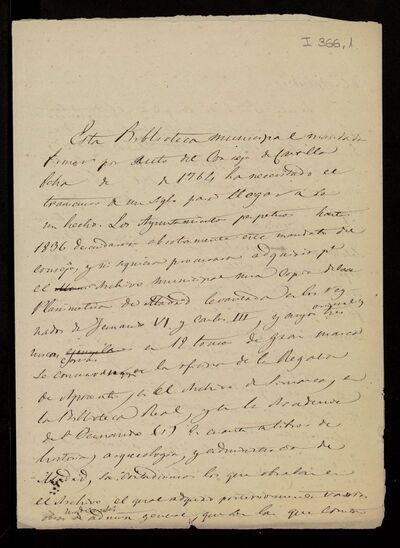 I 366,1
Esta Biblioteca municipal mandada
formar por Auto del Consejo de Castilla
fecha de de 1764 ha necesitado el
transcurso de un siglo para llegar á ser
un hecho. Los Ayuntamientos perpetuos hasta
1836 descuidaron absolutamente este mandato del
consejo, y ni siquiera procuraron adquirir pª
el Archivo municipal una copia de la
Planimetria de Madrid levantada en los rey-
nados de Fernando VI y Carlos III, y cuyos tres
unicos en 12 tomos de gran marca
se conservan en la oficina de la Regalia
de Aposento, en el Archivo de Simancas, en
la Biblioteca Real, y en la Academia
de Sn Fernando (1) En cuanto a libros de
historia, arqueología, y administracion de
Madrid, los que obraban en
el Archivo el qual adquirió posteriormente varias
obras de admon general, que son las que